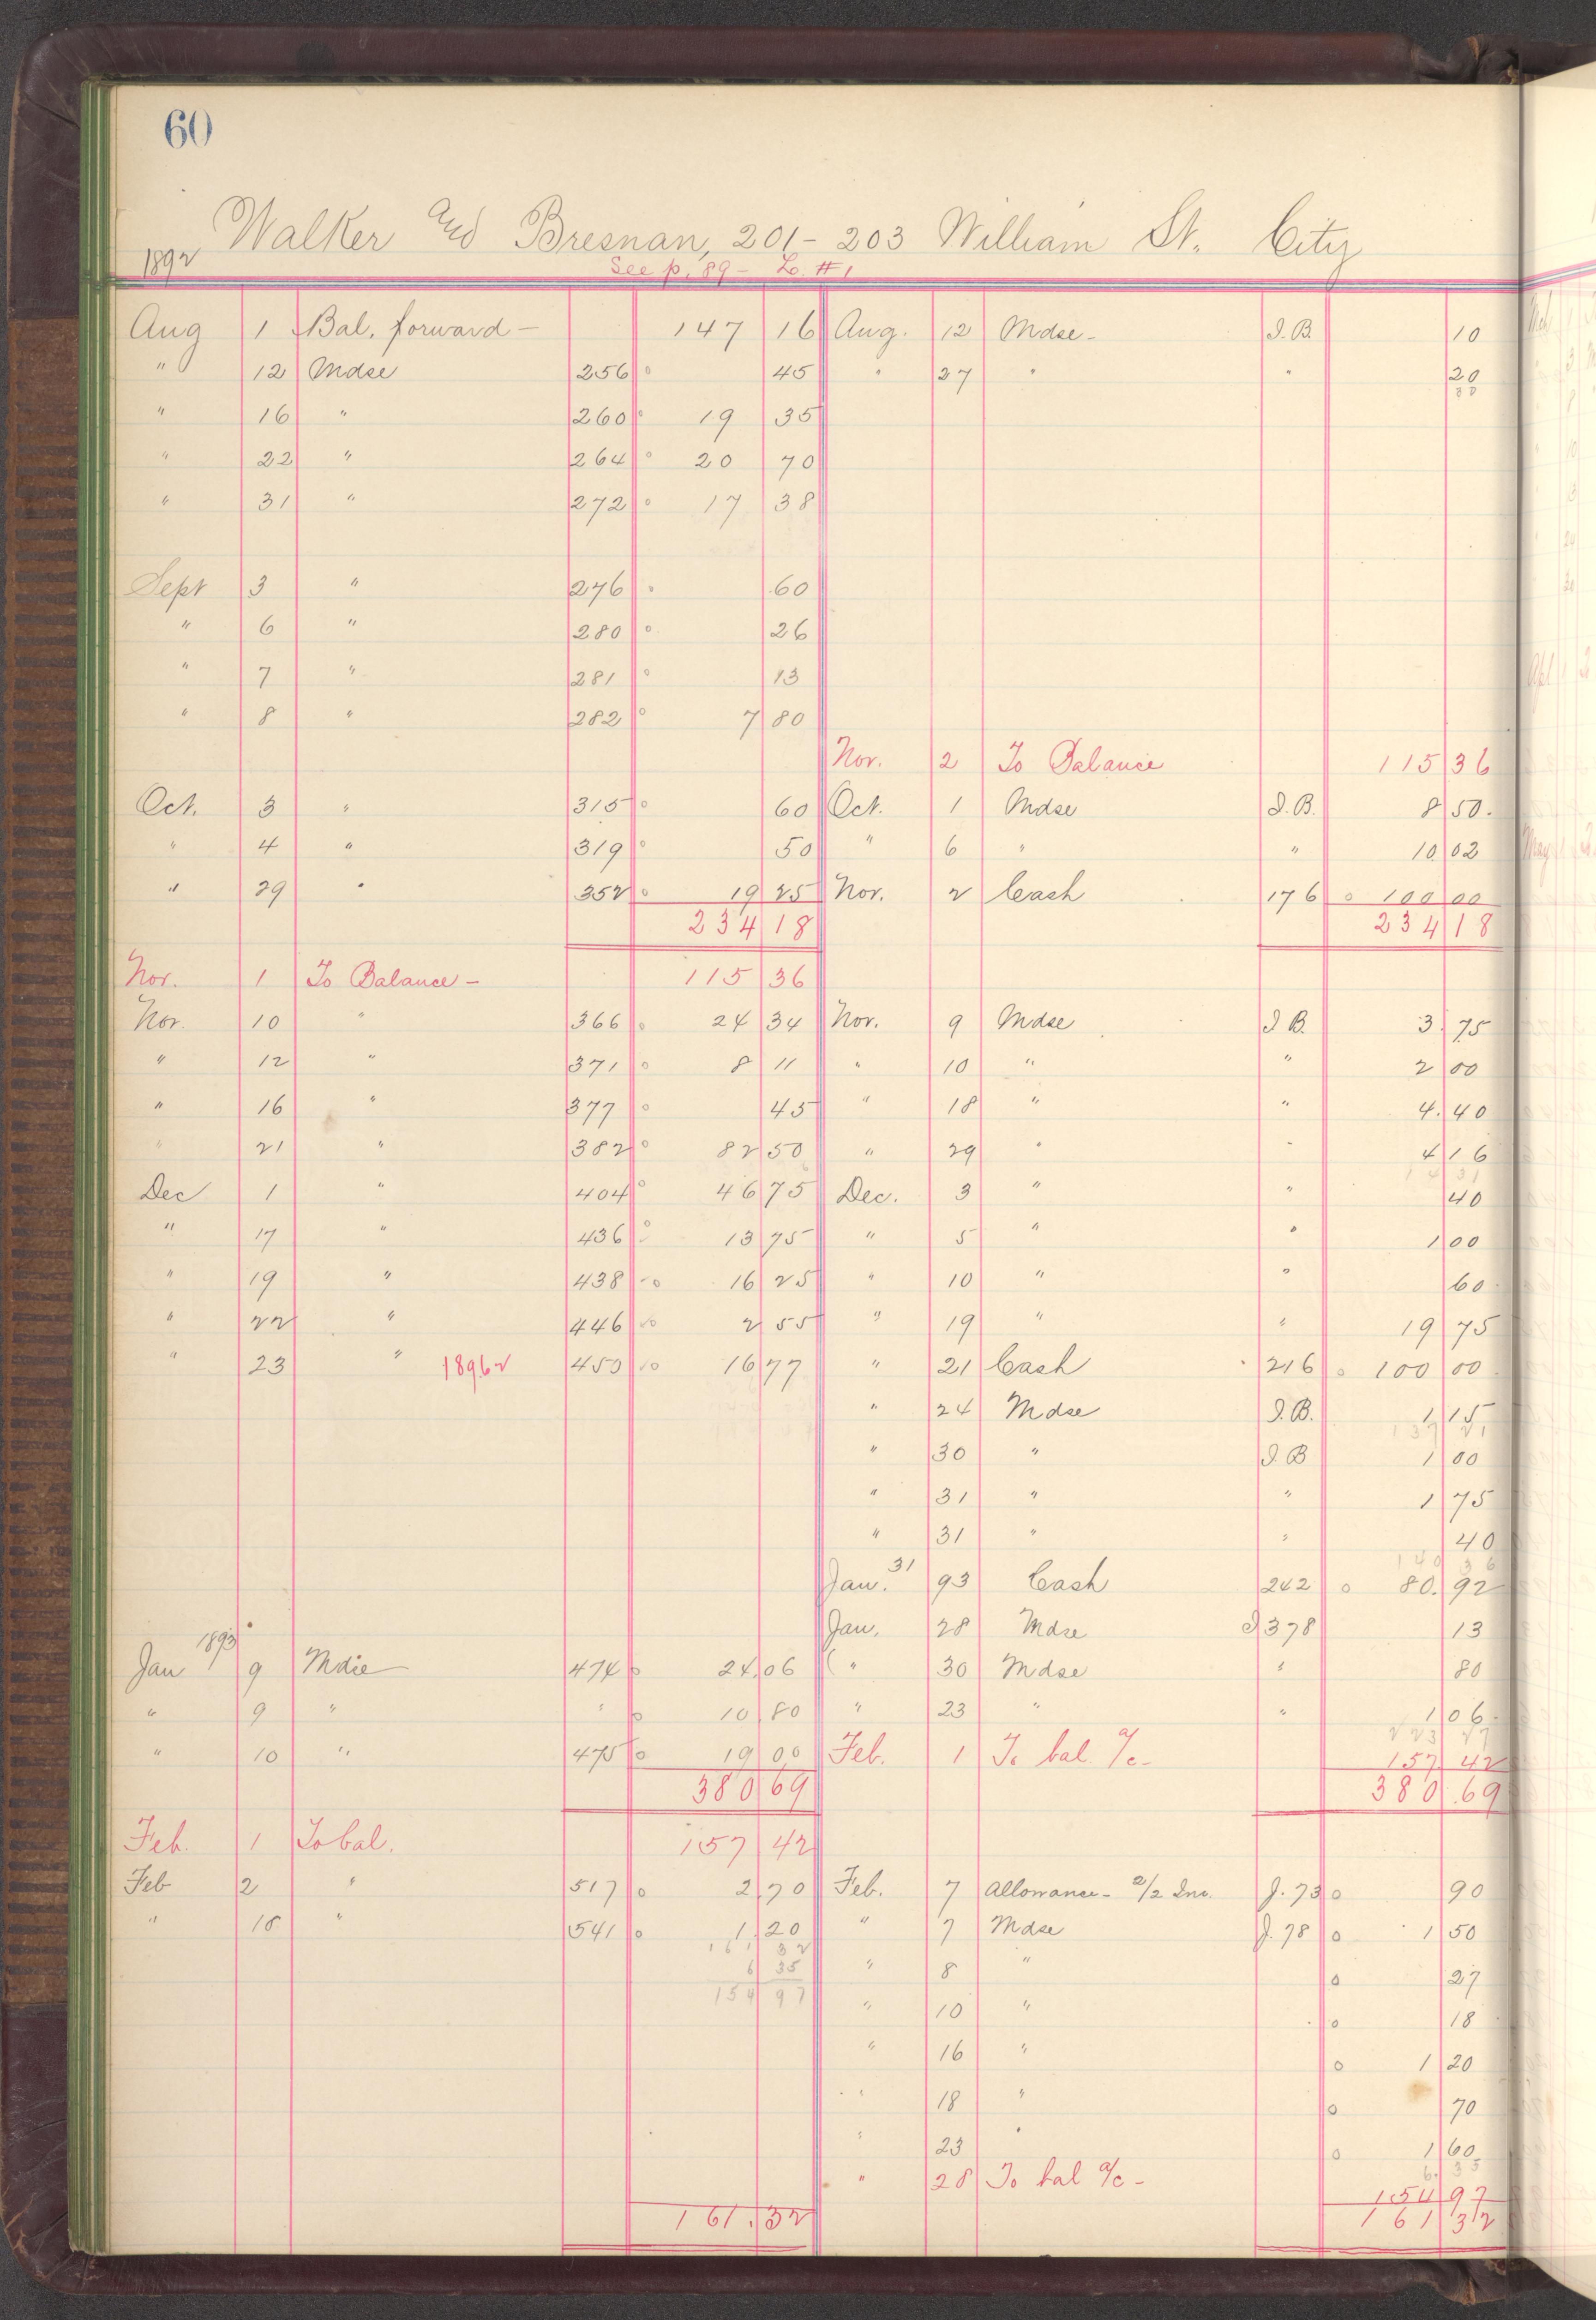 60
Walker and Bresnan, 201-203 William St. City
1892 See p. 89 - L. #1
Aug 1 Bal. forward - 147 16 Aug. 12 Mdse - I.B. 10
" 12 Mdse 256 0 45 " 27 " " 20
30
" 16 " 260 0 19 35
" 22 " 264 0 20 70
" 31 " 272 0 17 38
Sept 3 " 276 0 60
" 6 " 280 0 26
" 7 " 281 0 13
" 8 " 282 0 7 80
Nov. 2 To Balance 115 36
Oct. 3 " 315 0 60 Oct. 1 Mdse I.B. 8 50.
" 4 " 319 0 50 " 6 " " 10 02
" 29 " 352 0 19 25 Nov. 2 Cash 176 0 100 00
234 18 234 18
Nov. 1 To Balance - 115 36
Nov. 10 " 366 0 24 34 Nov. 9 Mdse I B. 3. 75
" 12 " 371 0 8 11 " 10 " " 2 00
" 16 " 377 0 45 " 18 " " 4. 40
" 21 " 382 0 82 50 " 29 " " 4 16
14 31
Dec 1 " 404 0 46 75 Dec. 3 " " 40
" 17 " 436 0 13 75 " 5 " " 1 00
" 19 " 438 0 16 25 " 10 " " 60
" 22 " 446 0 2 55 " 19 " " 19 75
" 23 " 450 0 16 77 " 21 Cash 216 0 100 00
" 24 Mdse I.B. 1 15
137 21
" 30 " I.B 1 00
" 31 " " 1 75
" 31 " " 40
140 36
Jan. 31 93 Cash 242 0 80. 92
Jan. 28 Mdse I 378 13
1893
Jan 9 Mdse 474 0 24 06 " 30 Mdse " 80
" 9 " " 0 10 80 " 23 " " 1 06.
223 27
" 10 " 475 0 19 00 Feb. 1 To bal. a/c - 157 42
380 69 380.69
Feb. 1 To bal. 157 42
Feb 2 " 517 0 2 70 Feb. 7 Allowance - 2/2 Inv. J. 73 0 90
" 18 " 541 0 1 20 " 7 Mdse J. 78 0 1 50
161 32
6 35 " 8 " 0 27
154 97 " 10 " 0 18
" 16 " 0 1 20
" 18 " 0 70
" 23 " 0 1 60
6. 35
" 28 To bal a/c - 154 97
161.32 161 32